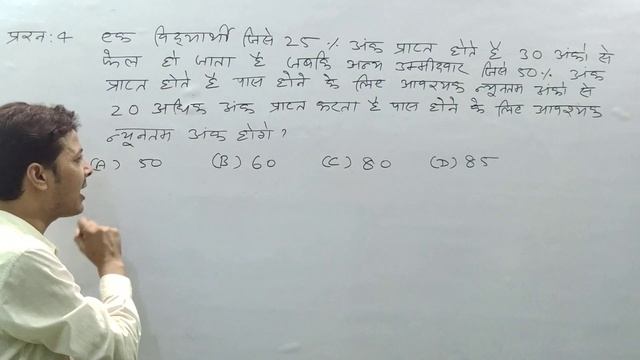 प्रश्न: 4 एक विद्यार्थी जिसे 25 % अंक प्राप्त होते है 30 अंको से
फेल हो जाता है जबकि अन्य उम्मीदवार जिसे 50% अंक
प्राप्त होते है पास होने के लिए आवश्यक न्यूनतम अंको से
20 अधिक अंक प्राप्त करता है पास होने के लिए आवश्यक
न्यूनतम अंक होगे ?
(A) 50 (B) 60 (C) 80 (D) 85